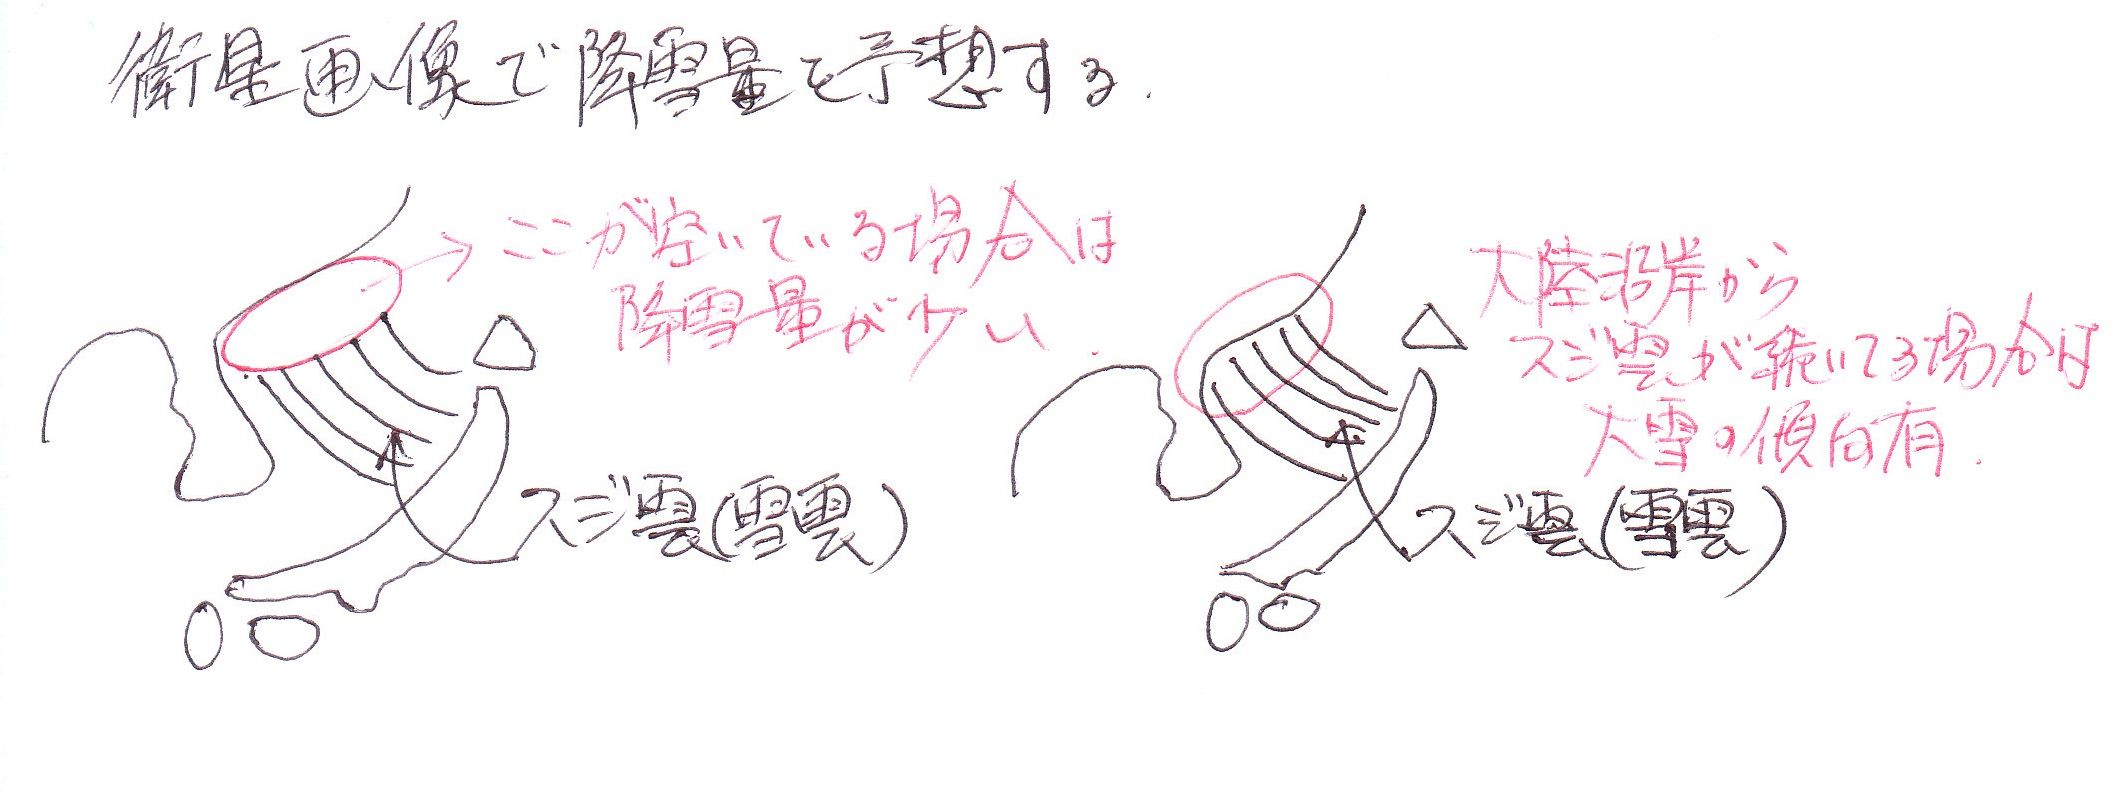 衛星画像で降雪量を予想する.
ここが空いている場合は
降雪量が少い.
スジ雲(雪雲)
大陸沿岸から
スジ雲が続いてる場合は
大雪の傾向有.
スジ雲(雪雲)